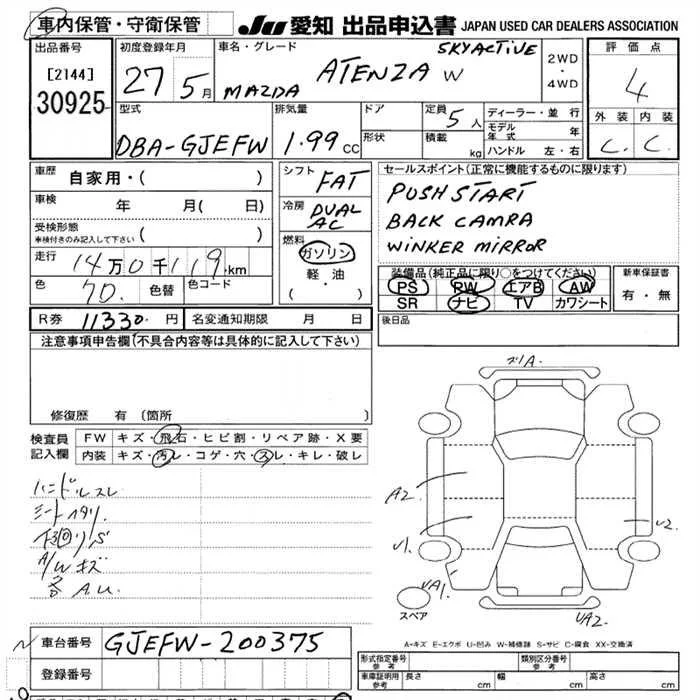 車内保管・守衛保管 JU 愛知 出品申込書 JAPAN USED CAR DEALERS ASSOCIATION
出品番号 初度登録年月 車名・グレード SKYACTIVE 評価点
[2144] 27 5月 MAZDA ATENZA W 2WD・4WD 4
30925
型式 排気量 ドア 定員 5人 ディーラー・並行 外装 内装
DBA-GJEFW 1.99cc 形状 積載 kg モデル年式 年 C. C.
ハンドル 左・右
車歴 自家用・( ) シフト FAT セールスポイント(正常に機能するものに限ります)
車検 年 月( 日) 冷房 DUAL AC PUSH START
受検形態 BACK CAMRA
車検付きのみ記入して下さい 燃料 WINKER MIRROR
走行 14万0千119km ガソリン
色 70. 色替 色コード 軽油 装備品(純正品に限り○をつけてください) 新車保証書
(・) PS PW エアB AW 有・無
SR ナビ TV カワシート
R券 11330円 名変通知期限 月 日 後日品
注意事項申告欄(不具合内容等は具体的に記入して下さい)
修復歴 有(箇所 )
検査員 FW キズ・飛石・ヒビ割・リペア跡・X要
記入欄 内装 キズ・汚レ・コゲ・穴・スレ・キレ・破レ
ハンドルスレ
シートヘタリ
A/Wキズ
各A.U.
A2
V1
VA1
V2
UA2
スペア
A-キズ E-エクボ U-凹み W-補修跡 S-サビ C-腐食 XX-交換済
車台番号 GJEFW-200375
登録番号
形式指定番号 参考 類別区分番号 参考
車庫証明用 参考 長さ cm 幅 cm 高さ cm